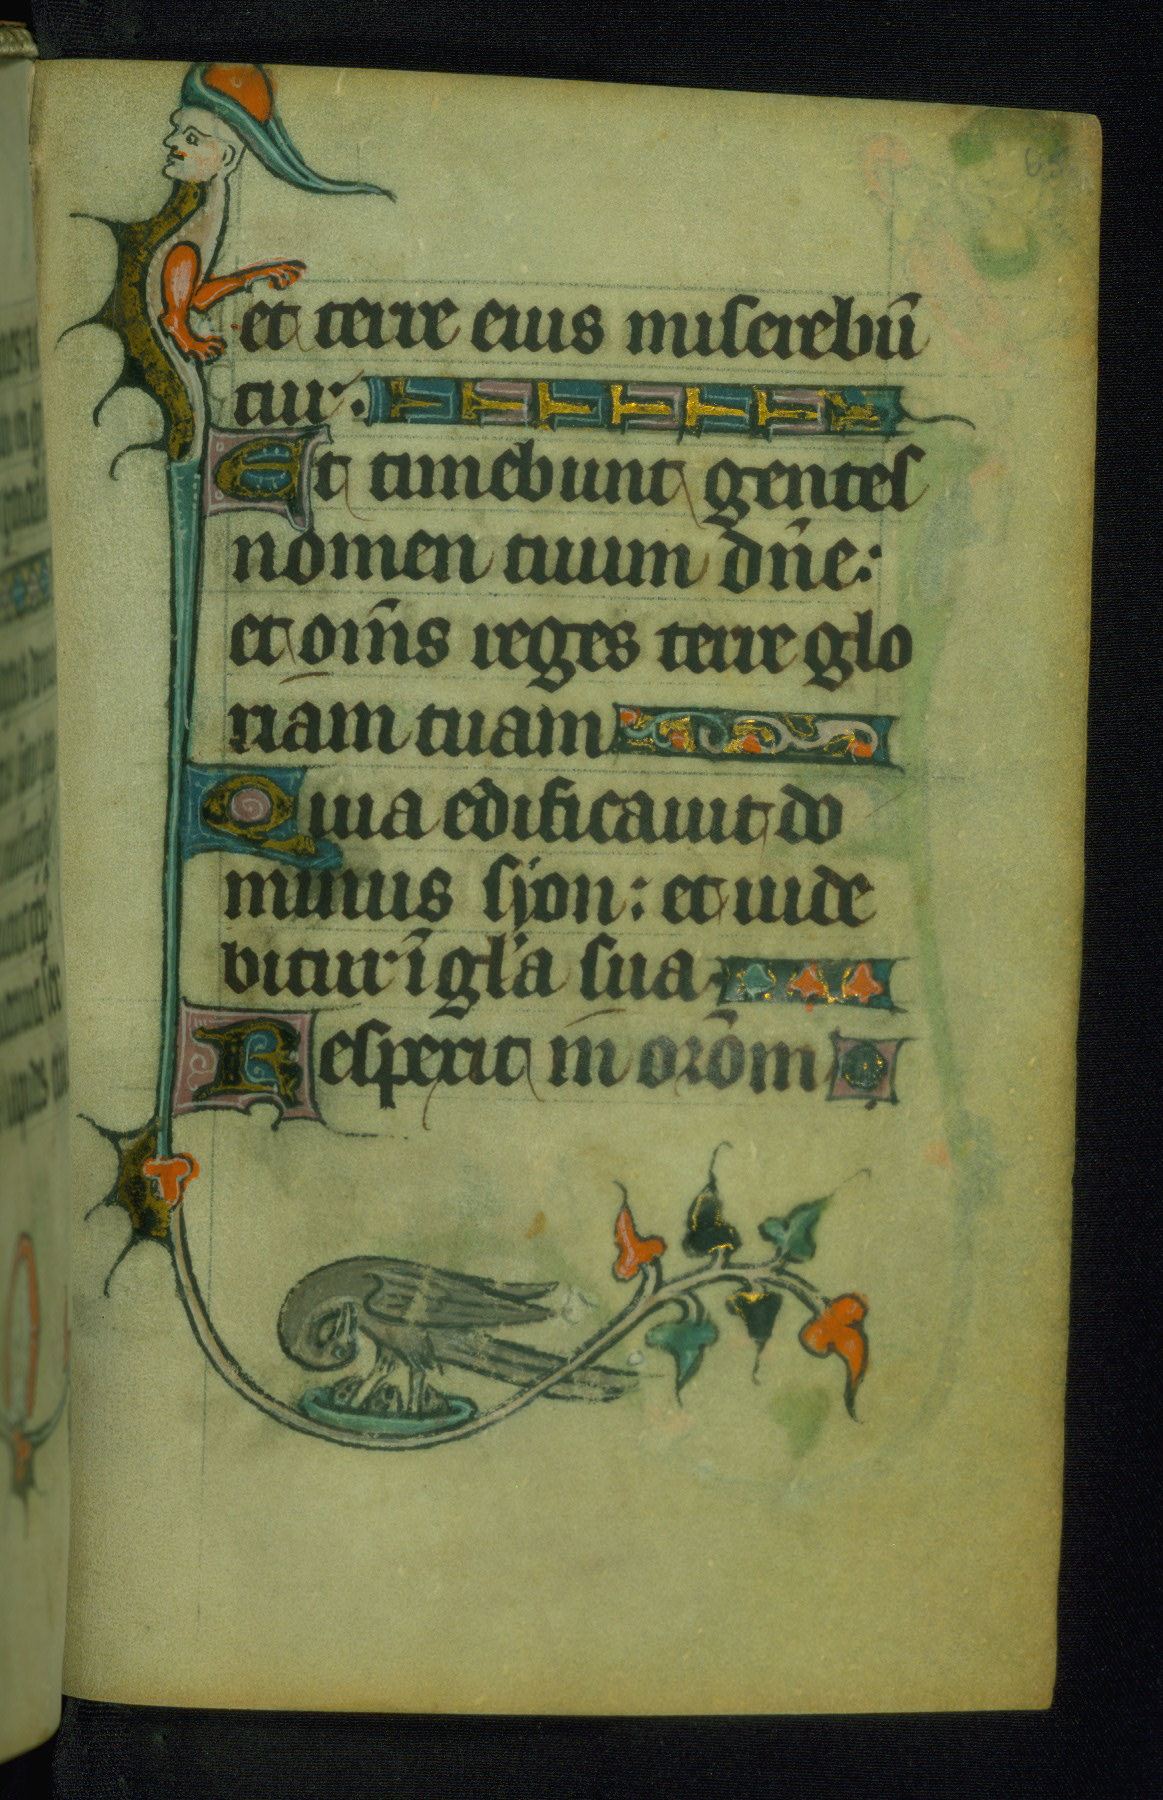 et terre eius miserebũ
tur.
Et timebunt gentes
nomen tuum dñe:
et om̃s reges terre glo
riam tuam
Quia edificauit do
minus syon: et uide
bitur ĩ gl'a sua
Respexit in orõm